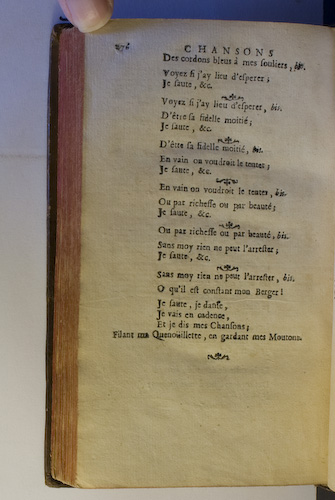 CHANSONS
Des cordons bleus à mes souliers, bis.
Voyez si j'ay lieu d'esperer;
Je saute, &c.
Voyez si j'ay lieu d'esperer, bis.
D'être sa fidelle moitié;
Je saute, &c.
D'être sa fidelle moitié, bis.
En vain on voudroit le tenter;
Je saute, &c.
En vain on voudroit le tenter, bis.
Ou par richesse ou par beauté;
Je saute, &c.
Ou par richesse ou par beauté, bis.
Sans moy rien ne peut l'arrester;
Je saute, &c.
Sans moy rien ne peut l'arrester, bis.
O qu'il est constant mon Berger!
Je saute, je danse,
Je vais en cadence,
Et je dis mes Chansons;
Filant ma Quenoüillette, en gardant mes Moutons.